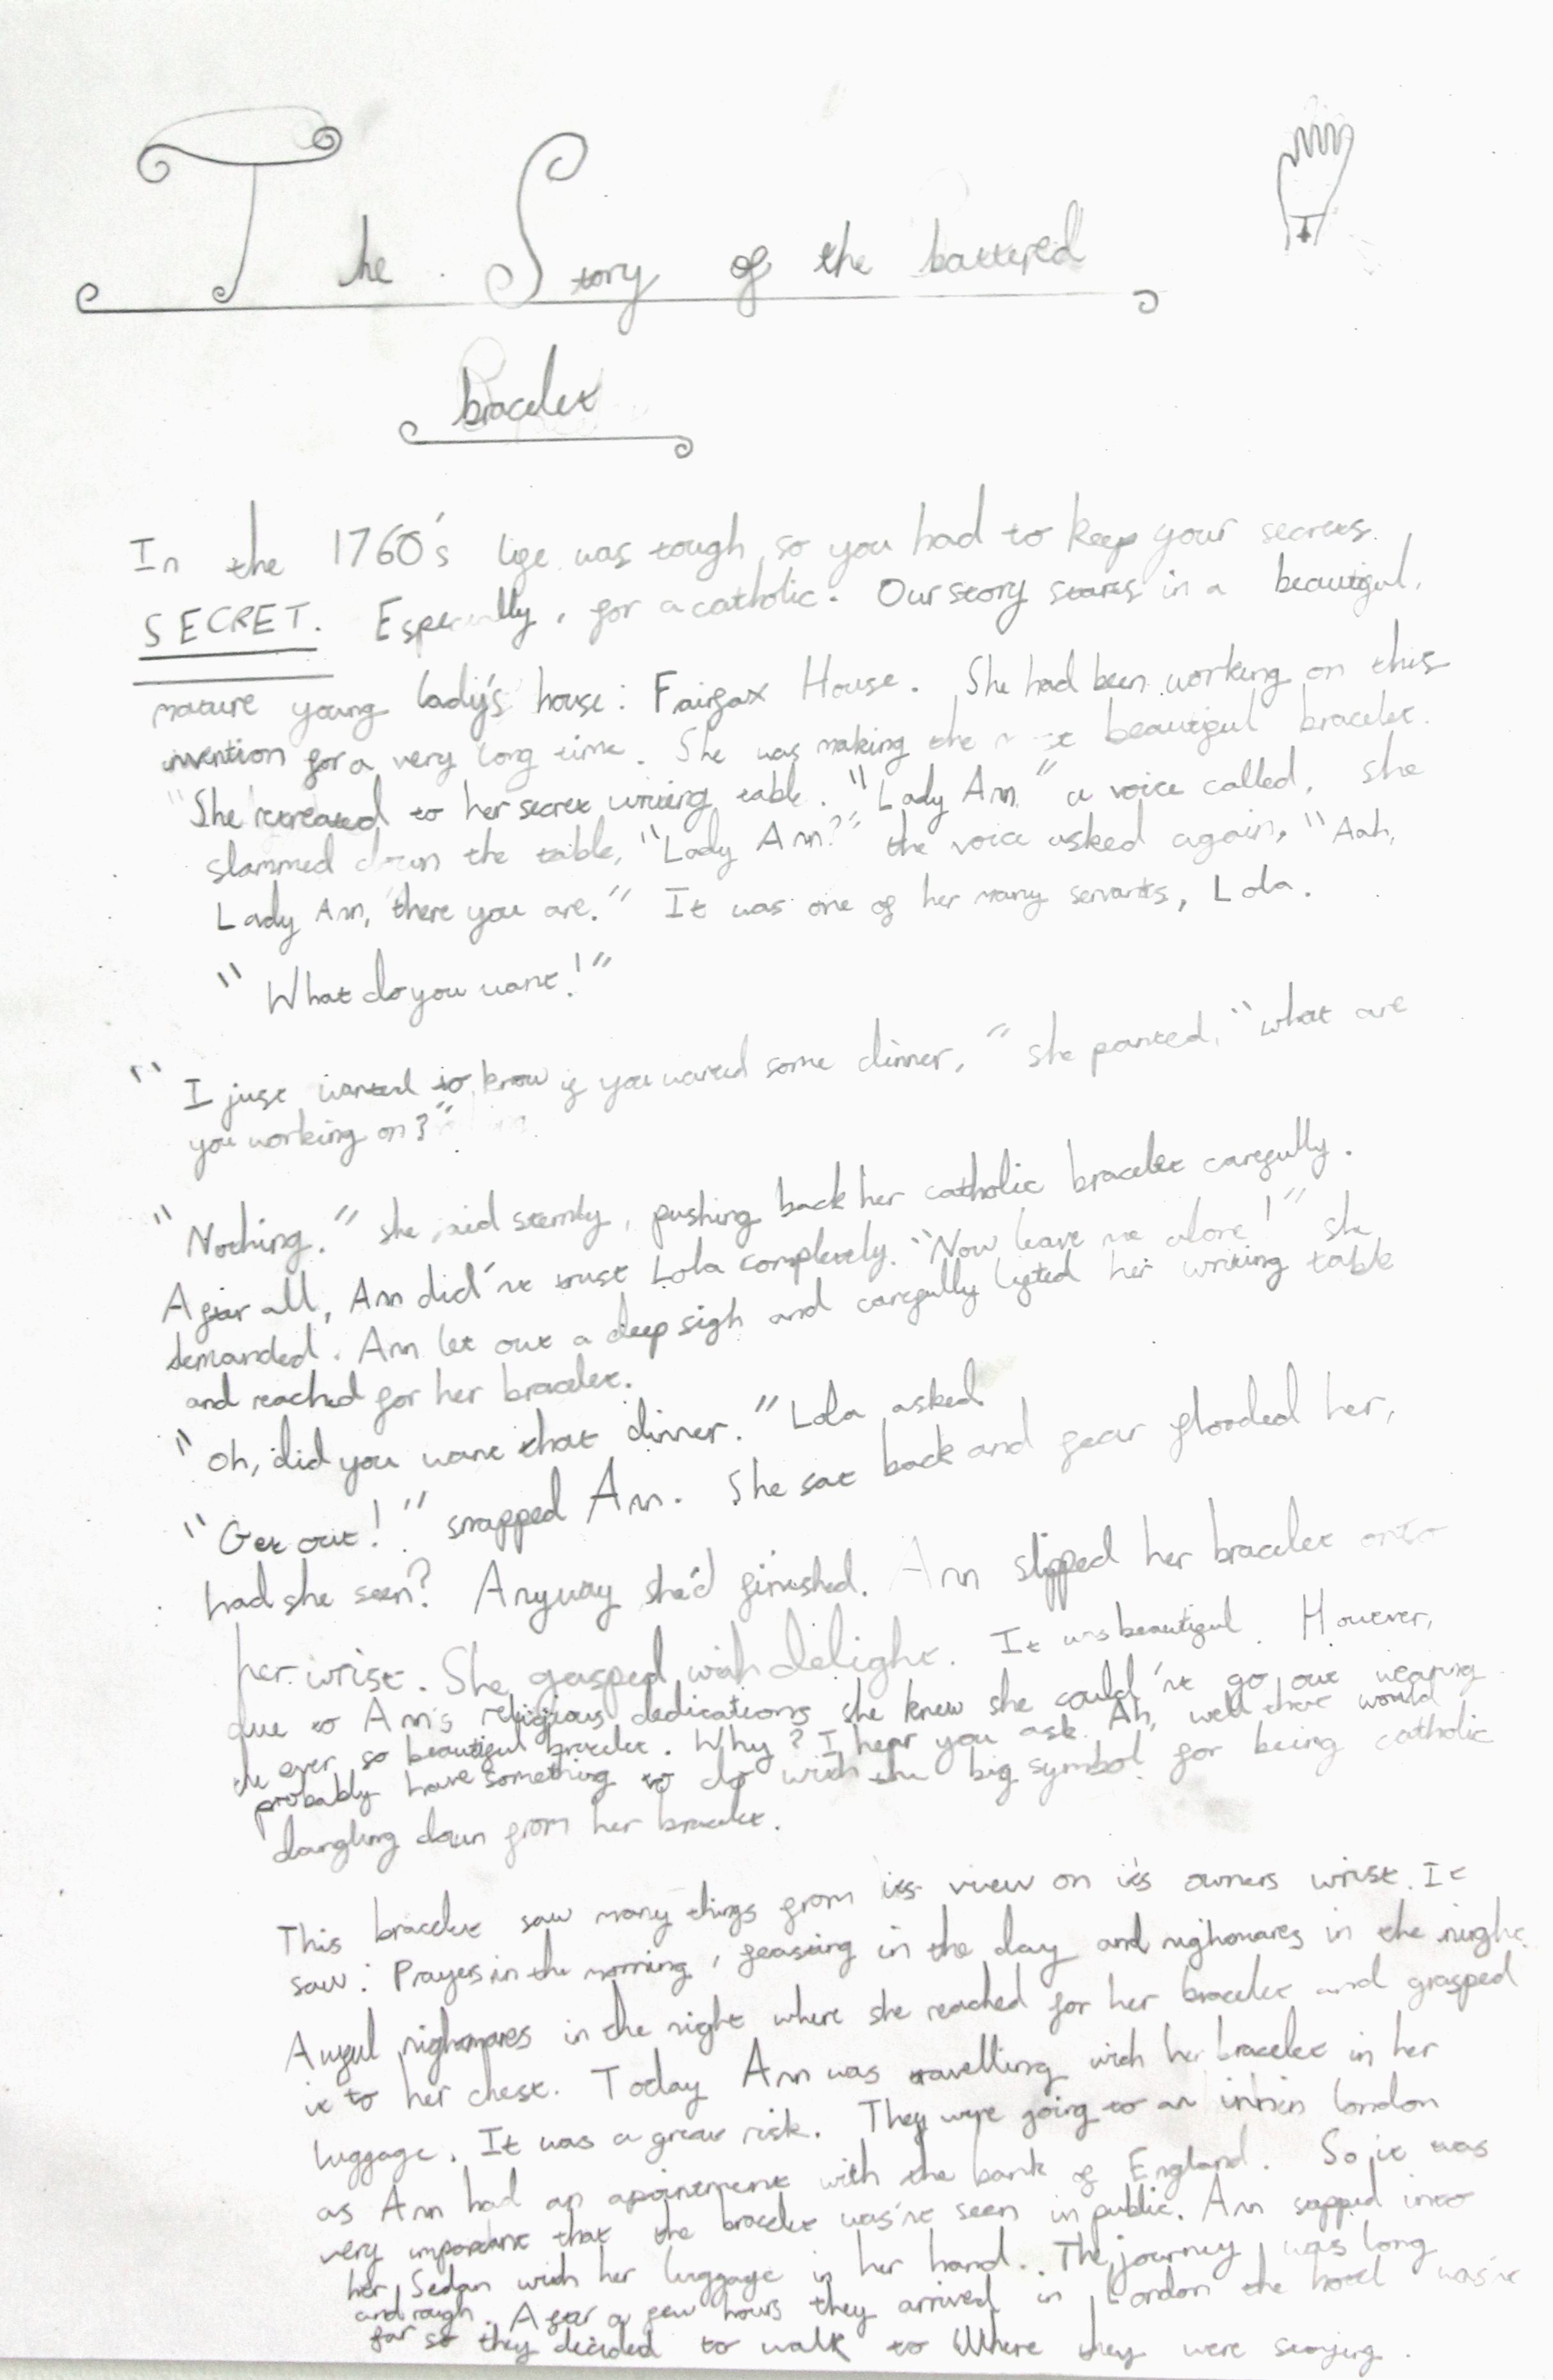 The Story of the battered
bracelet
In the 1760's life was tough, so you had to keep your secrets
SECRET. Especially, for a catholic. Our story starts in a beautiful,
mature young lady's house: Fairfax House. She had been working on this
invention for a very long time. She was making the most beautiful bracelet.
"She retreated to her secret writing table. "Lady Ann" a voice called, she
slammed down the table, "Lady Ann?" the voice asked again, "Aah,
Lady Ann, there you are." It was one of her many servants, Lola.
"What do you want!"
"I just wanted to know if you wanted some dinner," she panted, "what are
you working on?"
"Nothing." she said sternly, pushing back her catholic bracelet carefully.
After all, Ann did'nt trust Lola completely. "Now leave me alone!" she
demanded. Ann let out a deep sigh and carefully lifted her writing table
and reached for her bracelet.
"Oh, did you want that dinner." Lola asked
"Get out!" snapped Ann. She sat back and fear flooded her,
had she seen? Anyway she'd finished. Ann slipped her bracelet onto
her wrist. She gasped with delight. It was beautiful. However,
due to Ann's religious dedications she knew she could'nt go out wearing
the ever so beautiful bracelet. Why? I hear you ask. Ah, well that would
probably have something to do with the big symbol for being catholic
dangling down from her bracelet.
This bracelet saw many things from its view on it's owners wrist. It
saw: Prayers in the morning, feasting in the day and nighmares in the night.
Awful nighmares in the night where she reached for her bracelet and grasped
it to her chest. Today Ann was travelling with her bracelet in her
luggage. It was a great risk. They were going to an in london
as Ann had an apointement with the bank of England. So it was
very important that the bracelet was'nt seen in public. Ann sepped into
her Sedan with her luggage in her hand. The journey was long
and rough. After a few hours they arrived in London the hotel was'nt
far so they decided to walk to Where they were staying.